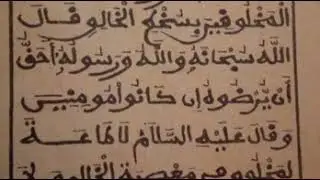 المخلوقين بسخط الخالق قال
الله سبحانه والله ورسوله أحق
أن يرضوه إن كانوا مومنين
وقال عليه السلام لا طاعة
لمخلوق في معصية الخالق